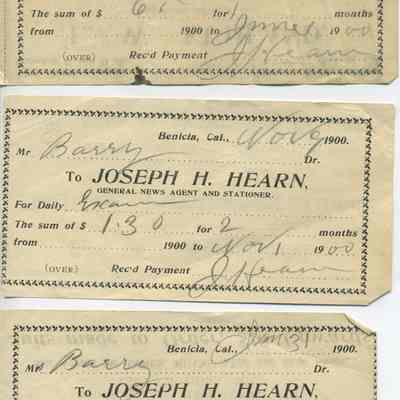 The sum of $ for months
from 1900 to June 1 1900
(OVER) Rec'd Payment J Hearn
Benicia, Cal., Nov 9 1900.
Mr Barry Dr.
To JOSEPH H. HEARN,
GENERAL NEWS AGENT AND STATIONER.
For Daily Exam
The sum of $ 1.30 for 2 months
from 1900 to Nov 1 1900
(OVER) Rec'd Payment J Hearn
Benicia, Cal., 31 1900.
Mr Barry Dr.
To JOSEPH H. HEARN,